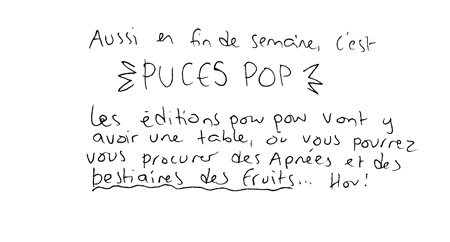 Aussi en fin de semaine, c'est
PUCES POP
Les éditions pow pow vont y
avoir une table, où vous pourrez
vous procurer des Apnées et des
bestiaires des fruits... Hou!